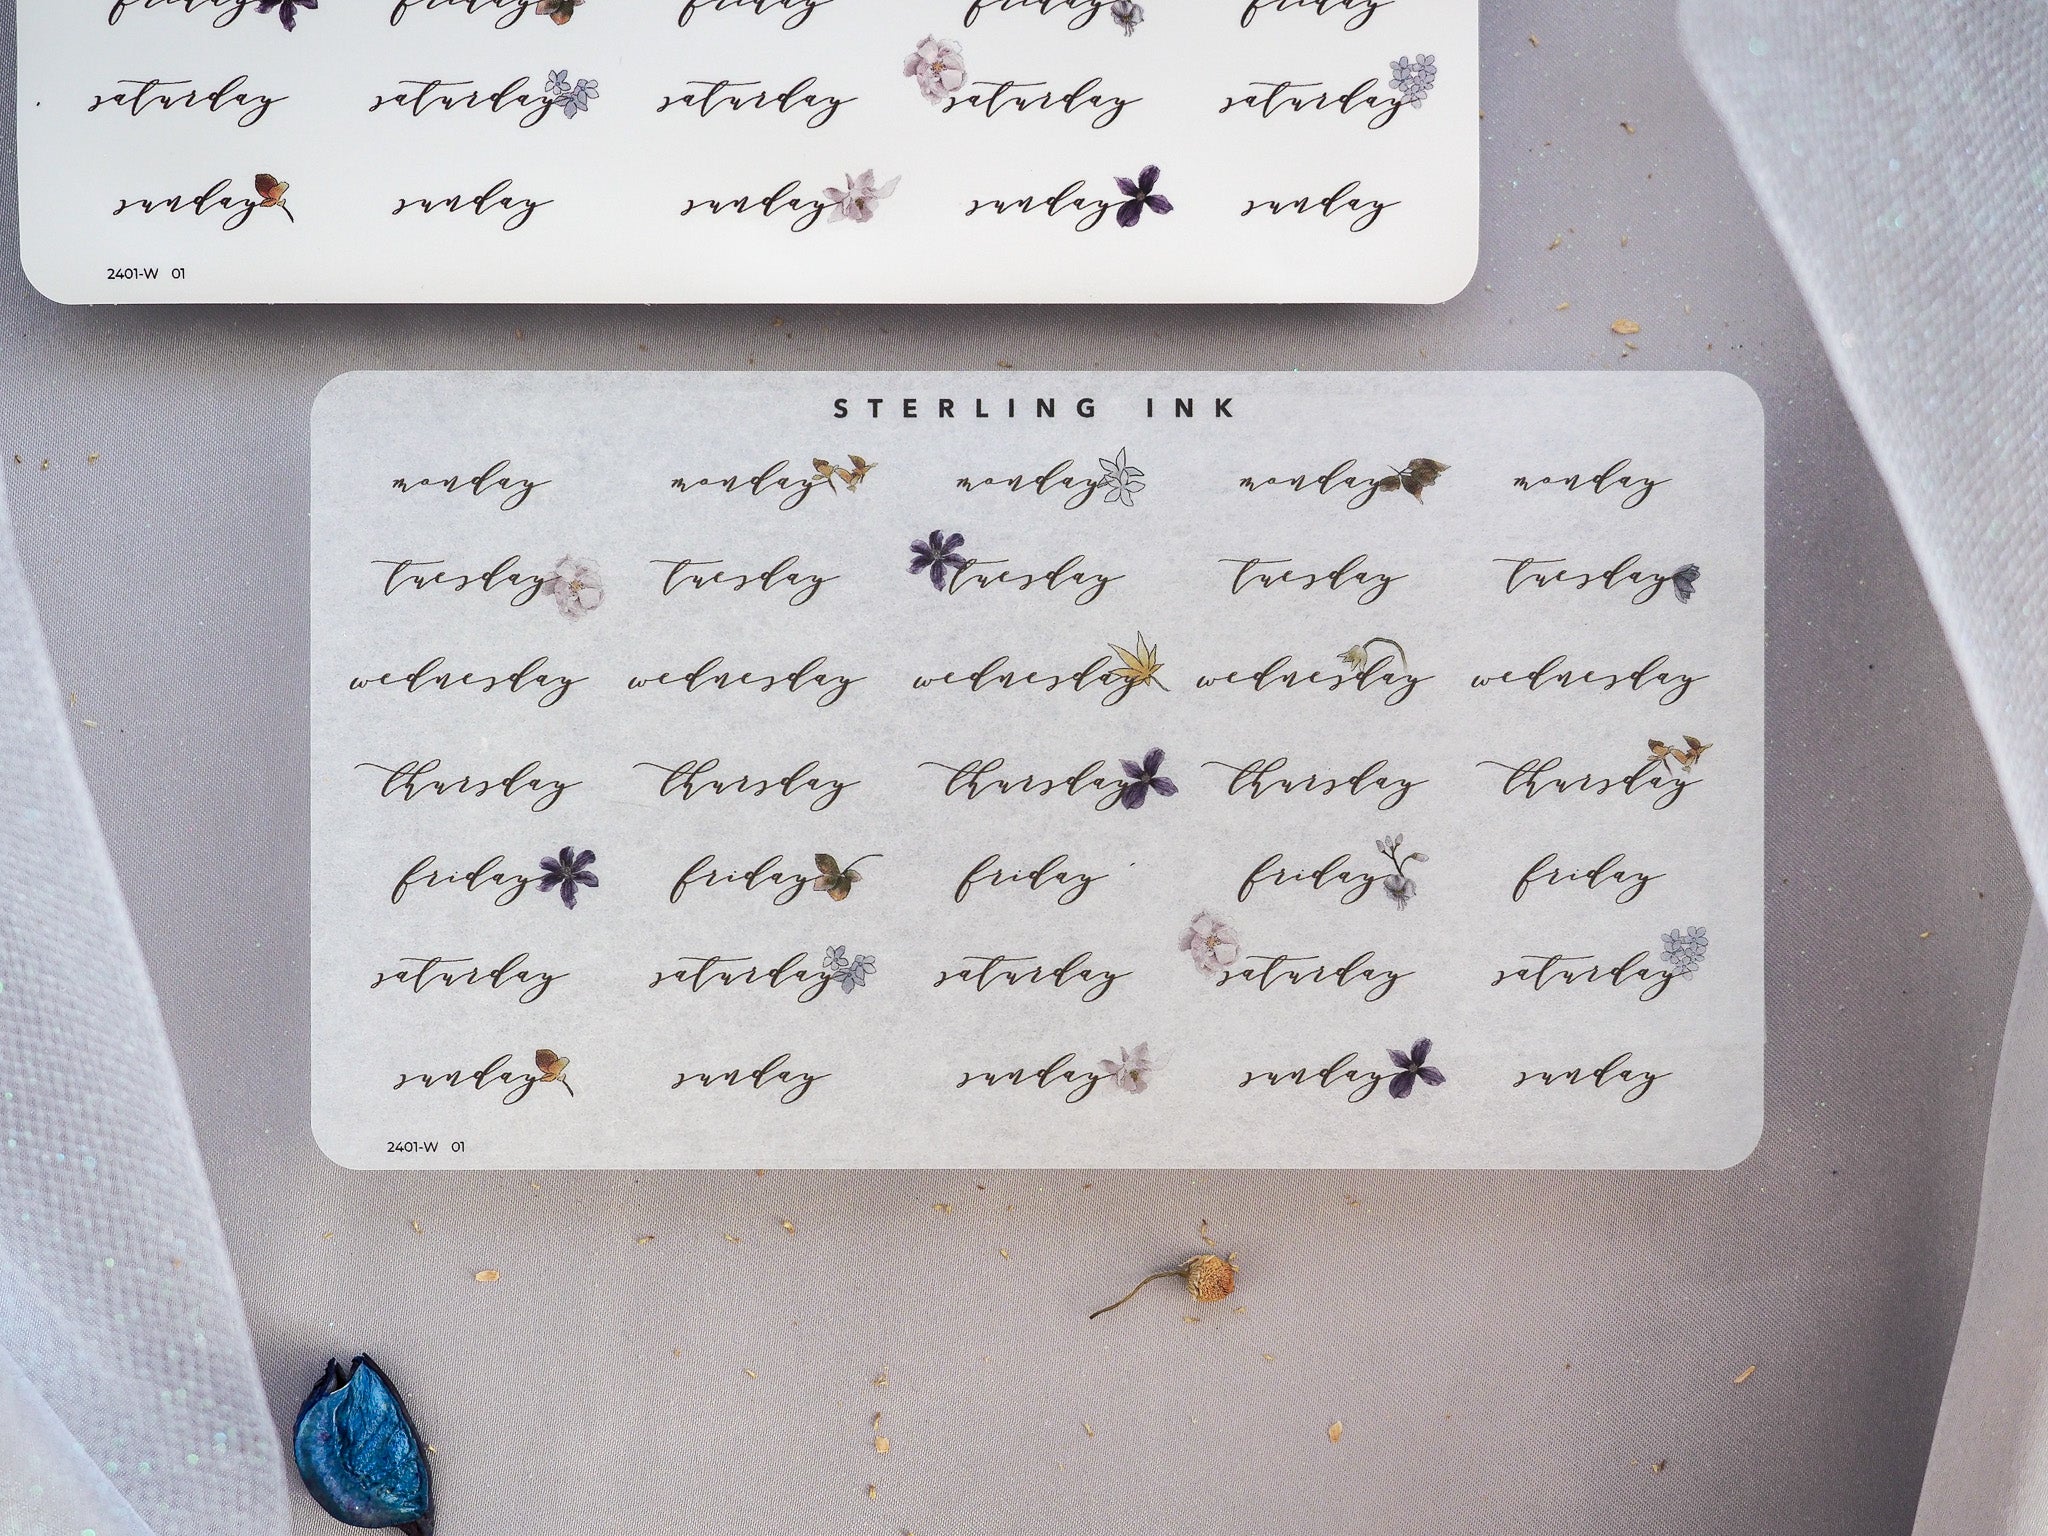 friday friday friday friday friday
saturday saturday saturday saturday saturday
sunday sunday sunday sunday sunday
2401-W 01
STERLING INK
monday monday monday monday monday
tuesday tuesday tuesday tuesday tuesday
wednesday wednesday wednesday wednesday wednesday
thursday thursday thursday thursday thursday
friday friday friday friday friday
saturday saturday saturday saturday saturday
sunday sunday sunday sunday sunday
2401-W 01